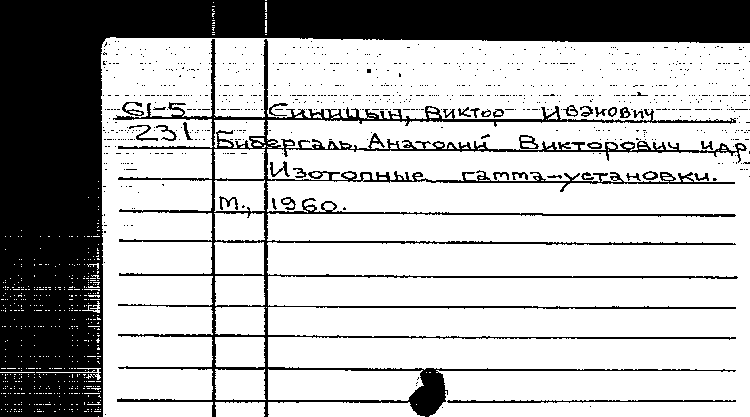 61-5 Синицын, Виктор Иванович
231 Бибергаль, Анатолий Викторович и др.
Изотопные гамма-установки.
М., 1960.